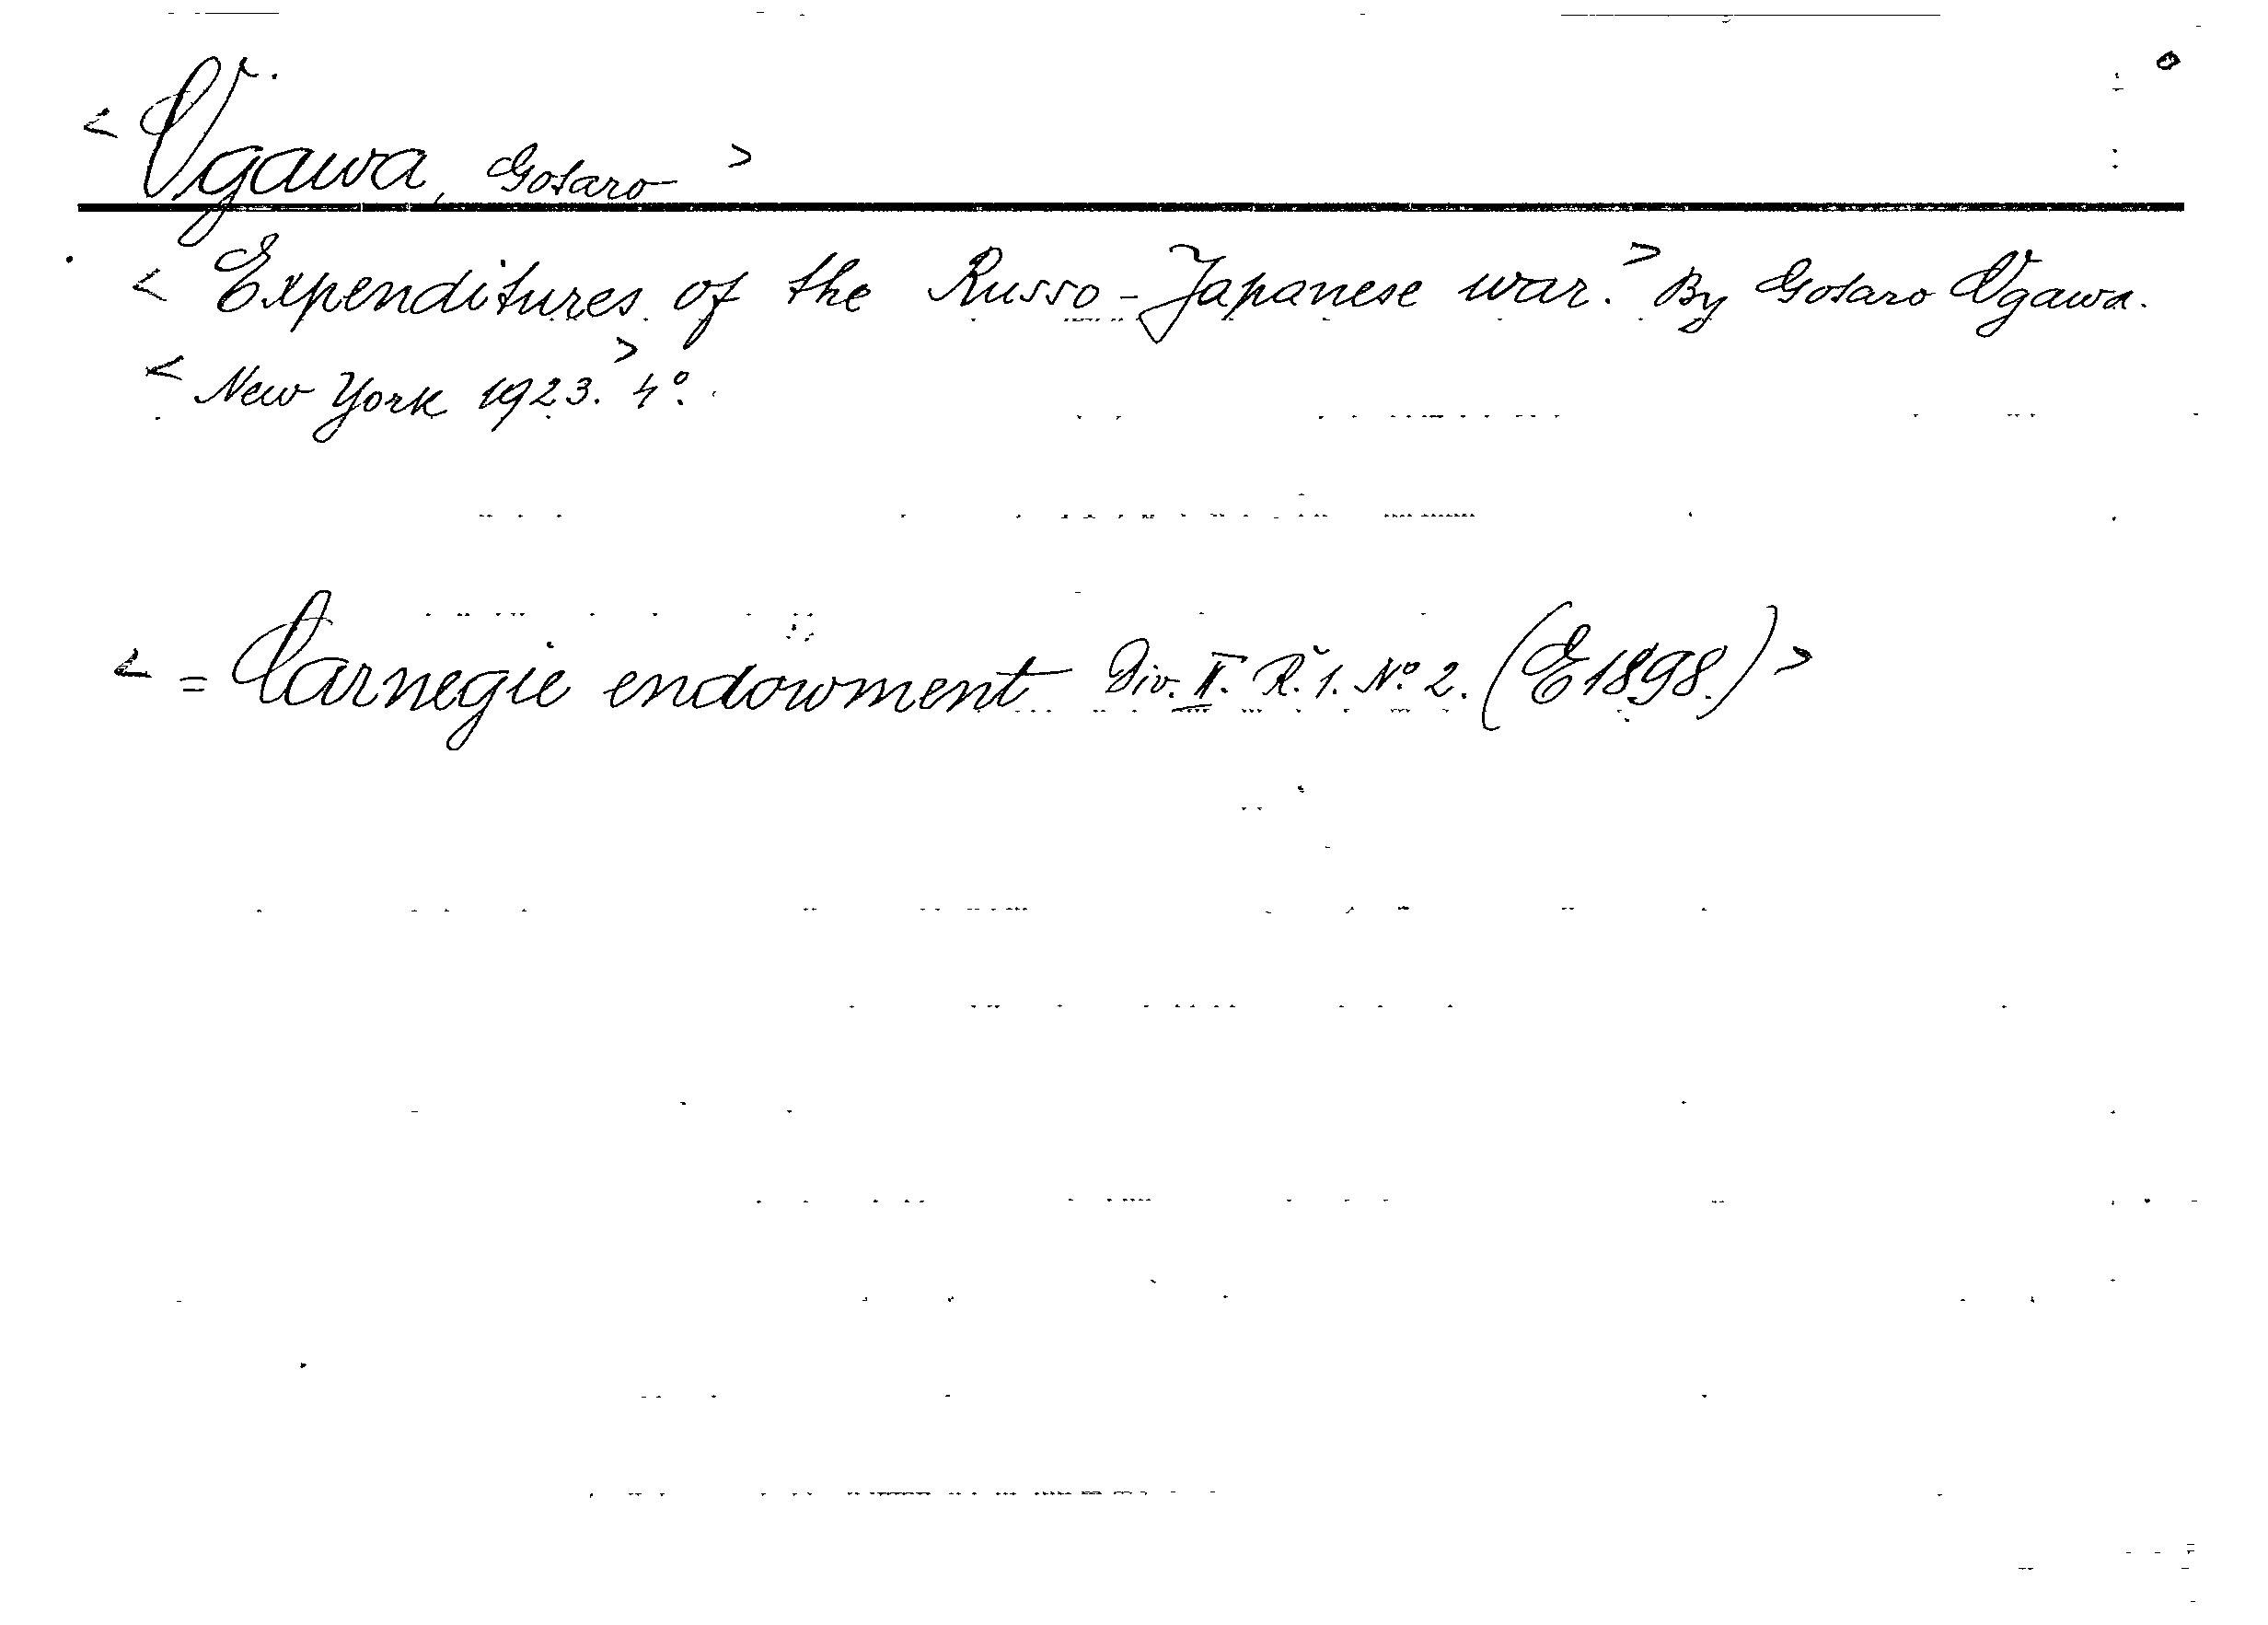 < Ogawa, Gotaro >
< Expenditures of the Russo-Japanese war. > By Gotaro Ogawa.
< New York 1923. > 4°.
< = Carnegie endowment Div. II. R. 1. No. 2. (E 1898.) >